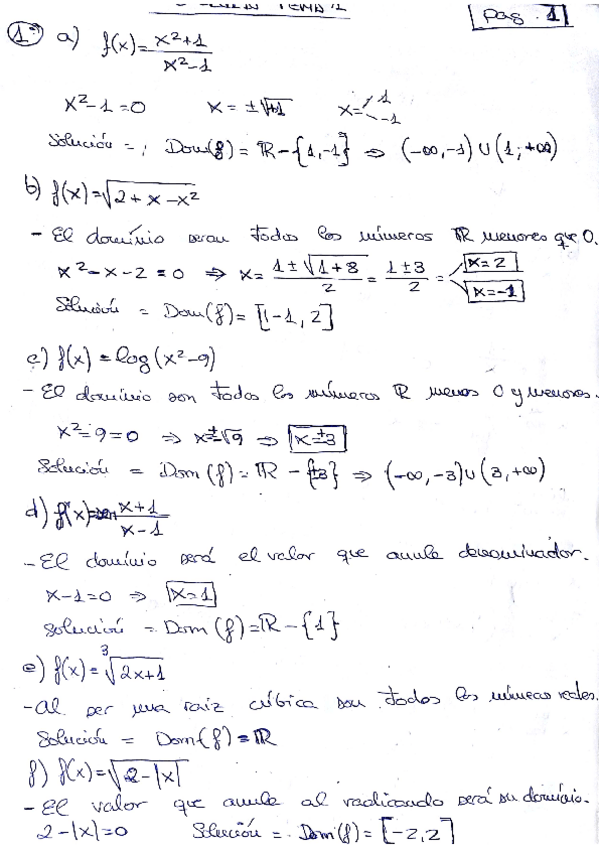 Pag. 1
1º a) f(x) = x²+1 / x²-1
x²-1=0   x = ±√+1   x= 1 -1
Solución = Dom(f) = R-{1,-1} ⇒ (-∞,-1) U (1,+∞)
b) f(x) = √2+x-x²
- El domínio seran todos los números R menores que 0.
x²-x-2=0 ⇒ x = 1±√1+8 / 2 = 1±3 / 2 = x=2 x=-1
Solución = Dom(f) = [-1,2]
c) f(x) = log(x²-9)
- El domínio son todos los números R menos 0 y menores.
x²-9=0 ⇒ x=±√9 ⇒ x=±3
Solución = Dom(f) = R-{±3} ⇒ (-∞,-3) U (3,+∞)
d) f(x)= x+1 / x-1
- El domínio será el valor que anule denominador.
x-1=0 ⇒ x=1
Solución = Dom(f)=R-{1}
e) f(x) = ³√2x+1
- Al ser una raiz cúbica son todos los números reales.
Solución = Dom(f) = R
f) f(x) = √2-|x|
- El valor que anule al radicando será su domínio.
2-|x|=0   Solución = Dom(f) = [-2,2]